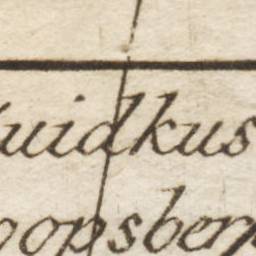 uidkus
oopsberg